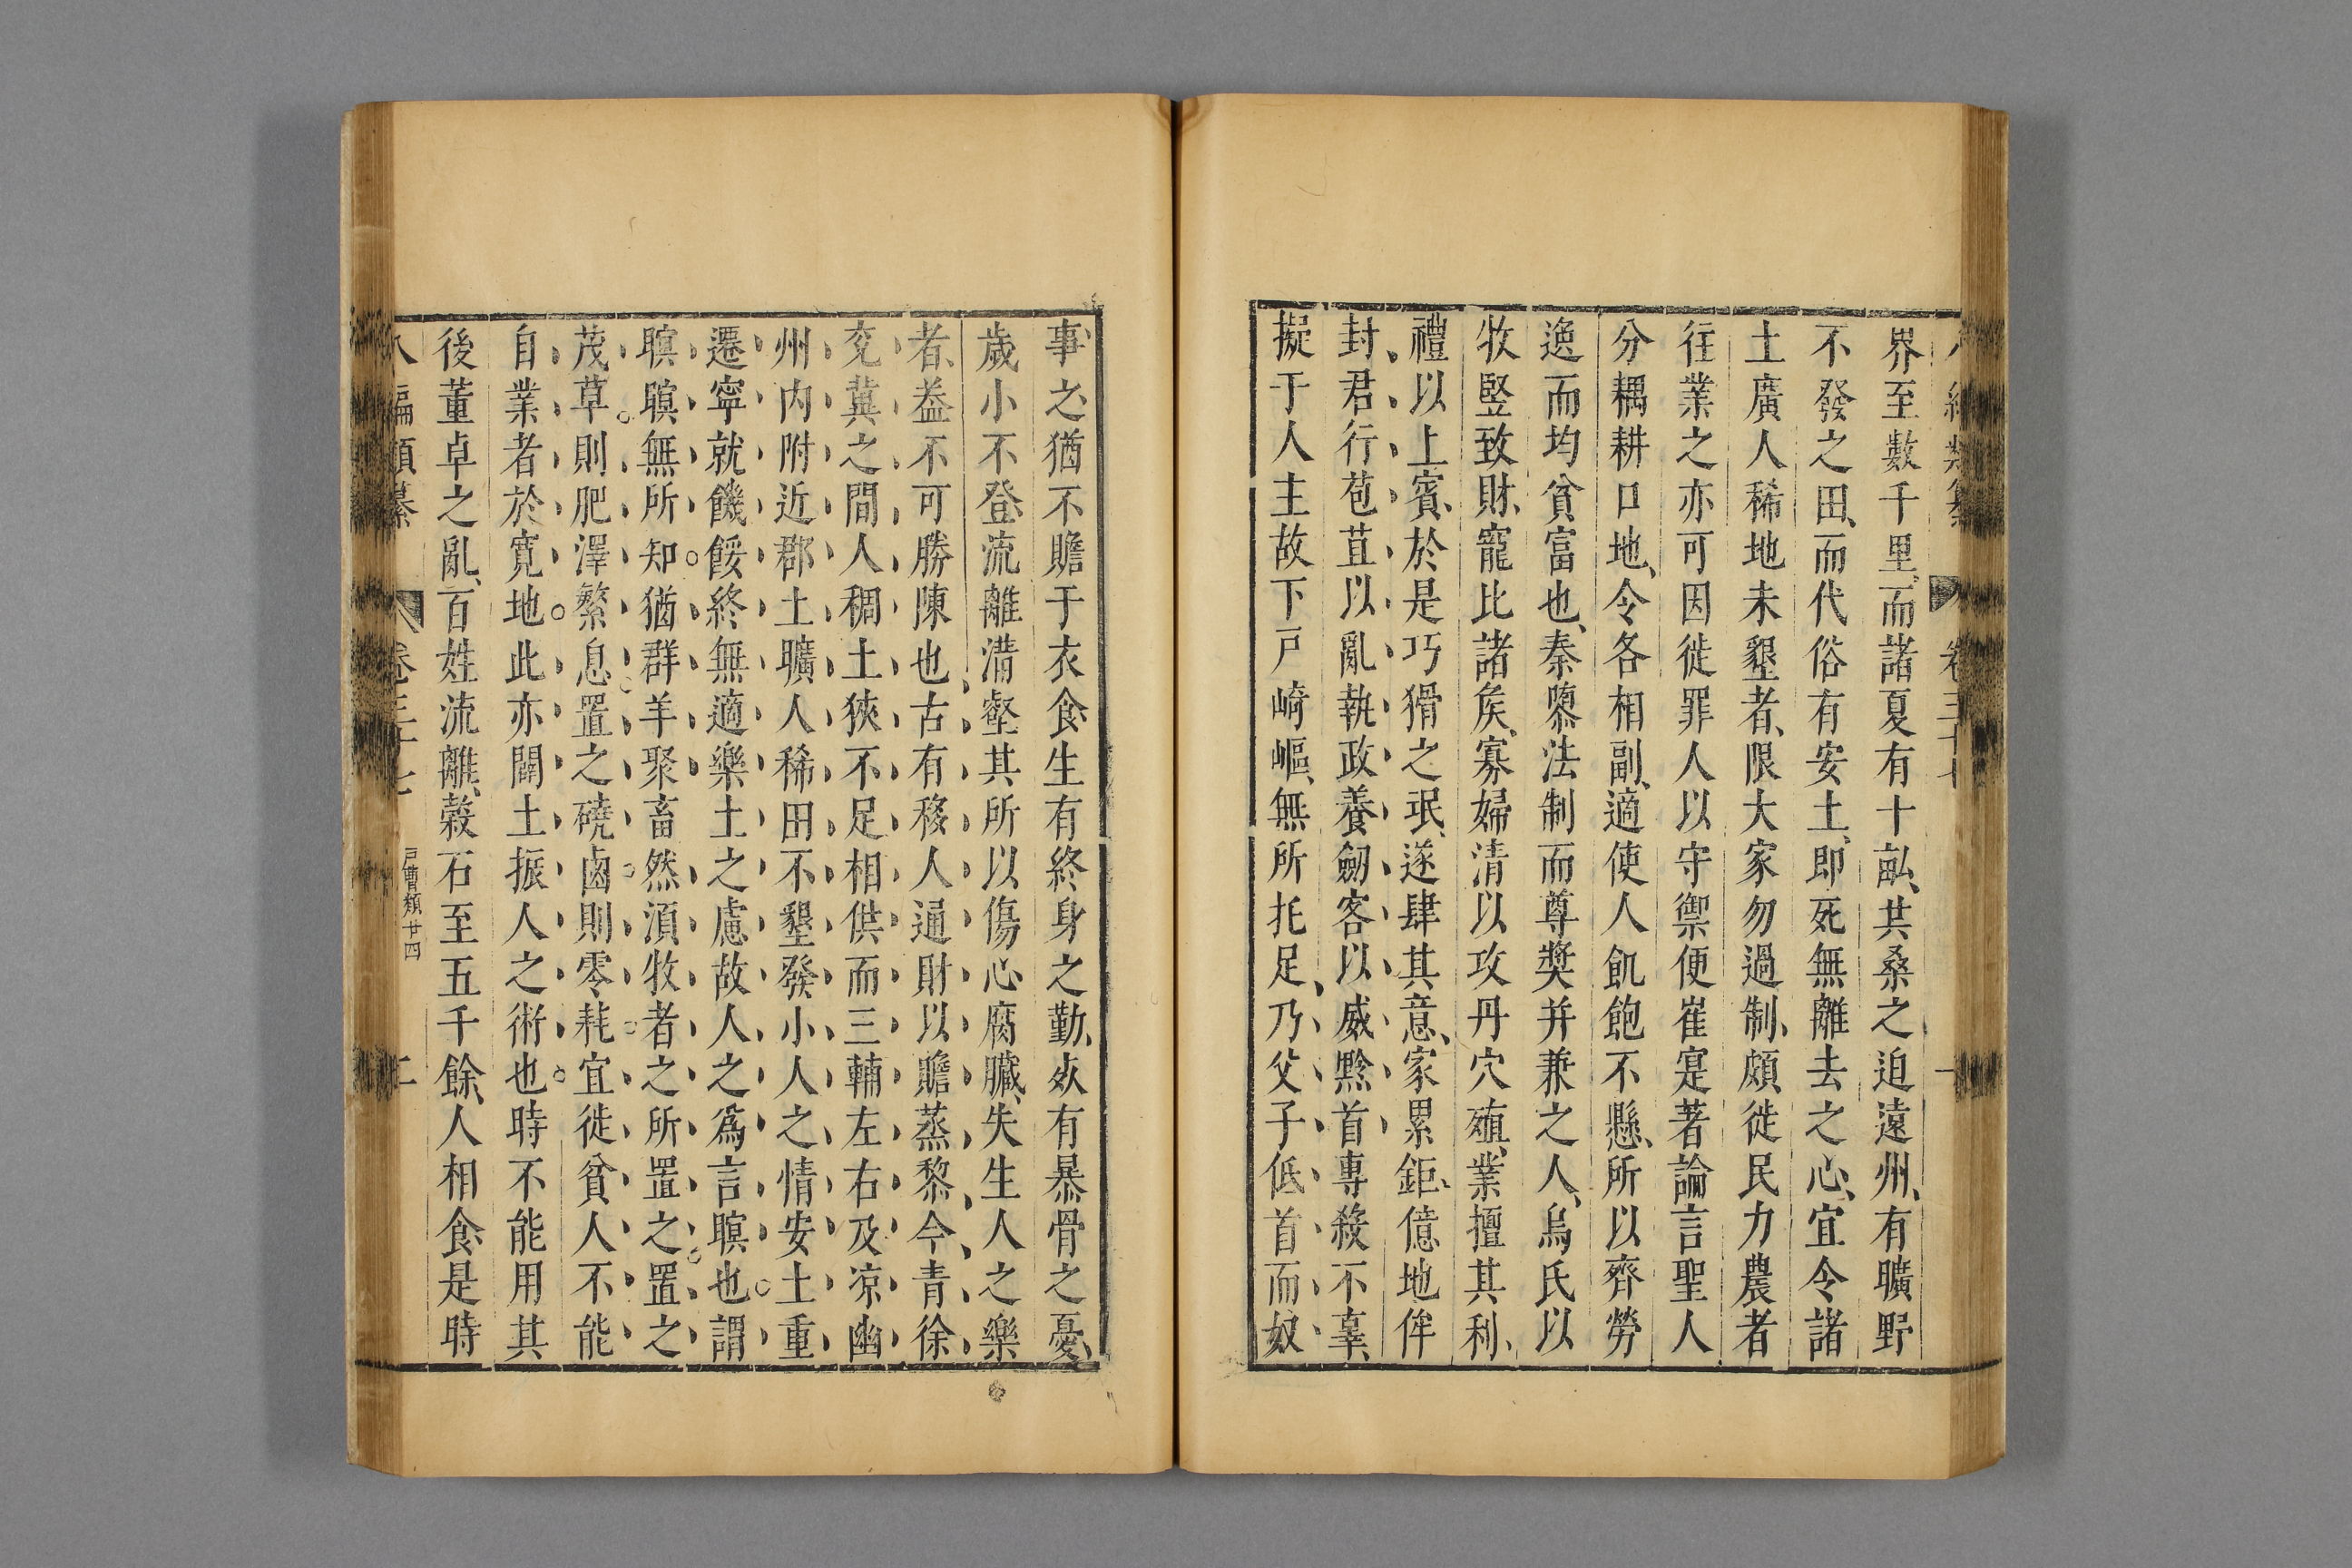 界至數千里而諸夏有十畝、其桑之迫遠州、有曠野
不發之田、而代俗有安土、即死無離去之心、宜令諸
土廣人稀地未墾者、限大家勿過制、頗徙民力農者
往業之亦可因徙罪人以守禦便崔寔著論言聖人
分耦耕口地、令各相副、適使人飢飽不懸、所以齊勞
逸而均貧富也、秦隳法制而尊奬并兼之人、烏氏以
牧竪致財、寵比諸矦、寡婦清以攻丹穴殖、業擅其利、
禮以上賓、於是巧猾之珉、遂肆其意、家累鉅、億地侔
封、君行苞苴以亂執政養劒客以威黔首專殺不辜、
擬于人主故下戸崎嶇、無所托足、乃父子低首而奴
事之猶不贍于衣食生有終身之勤、歿有暴骨之憂、
歲小不登流離溝壑其所以傷心腐臟、失生人之樂
者、葢不可勝陳也、古有移人通財以贍蒸黎、今、青徐
兖冀之間人稠土狹不足相供而三輔左右及凉幽
州内附近郡土曠人稀田不墾發小人之情安土重
遷寧就饑餒終無適樂土之慮故人之爲言瞑也謂
瞑瞑無所知猶群羊聚畜然湏牧者之所置之置之
茂草則肥澤繁息置之磽鹵則零耗宜徙貧人不能
自業者於寛地此亦開土振人之術也時不能用其
後董卓之亂、百姓流離、榖石至五千餘、人相食是時
八編類纂 卷三十七 戸曹類廿四 二